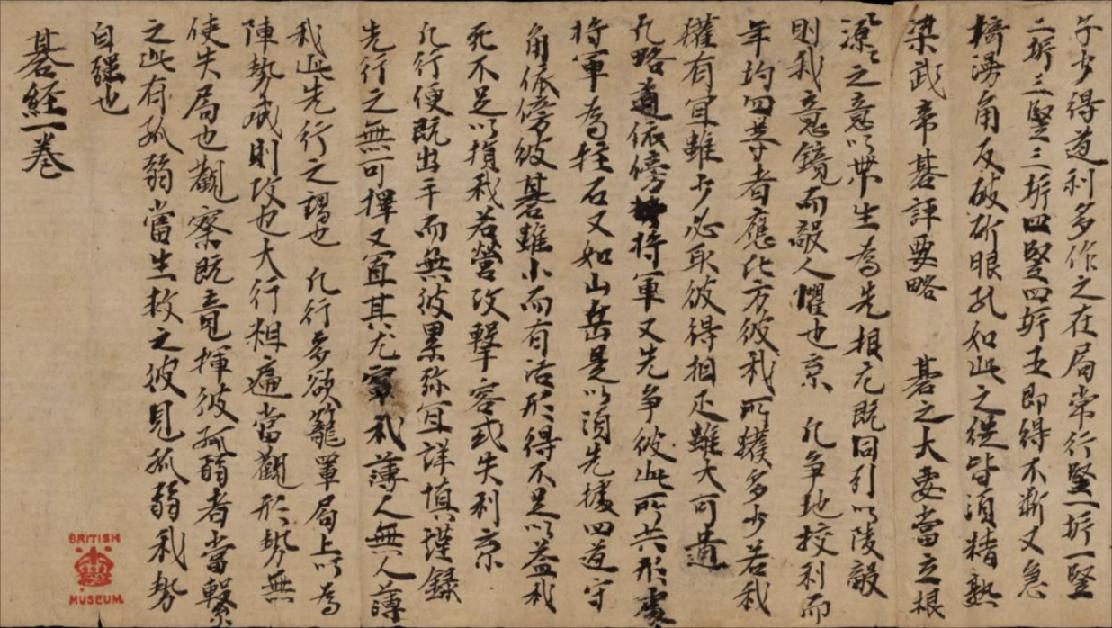 子少得道利多作之在局常行竪一拆一竪
二拆三竪三拆四竪四拆五即得不斷又急
擣湧角反破斫眼孔如此之徒皆須精熟
梁武帝碁評要略 碁之大要當立根
源〻之意以帶生為先根元既固引以陵敵
則我意鏡而敵人懼也京 凡爭地校利而
年均四等者應此方彼我所獲多少若我
獲有宜雖少必取彼得相匹雖大可遺
凡略道依傍將軍又先爭彼此所共形處
將軍為柱石又如山岳是以須先據四道守
角依傍彼碁雖小而有活形得不足以益我
死不足以損我若營攻擊容或失利京
凡行便既出手而無彼累弥宜詳慎謹錄
先行之無可擇又宜其尤窂我薄人無人薄
我此先行之謂也 凡行為欲籠罩局上以為
陣勢成則攻也大行粗遍當觀形勢無
使失局也觀察既竟揮彼孤弱者當擊
之此有孤弱當生救之彼見孤弱我勢
自強也
碁経一卷
BRITISH
MUSEUM